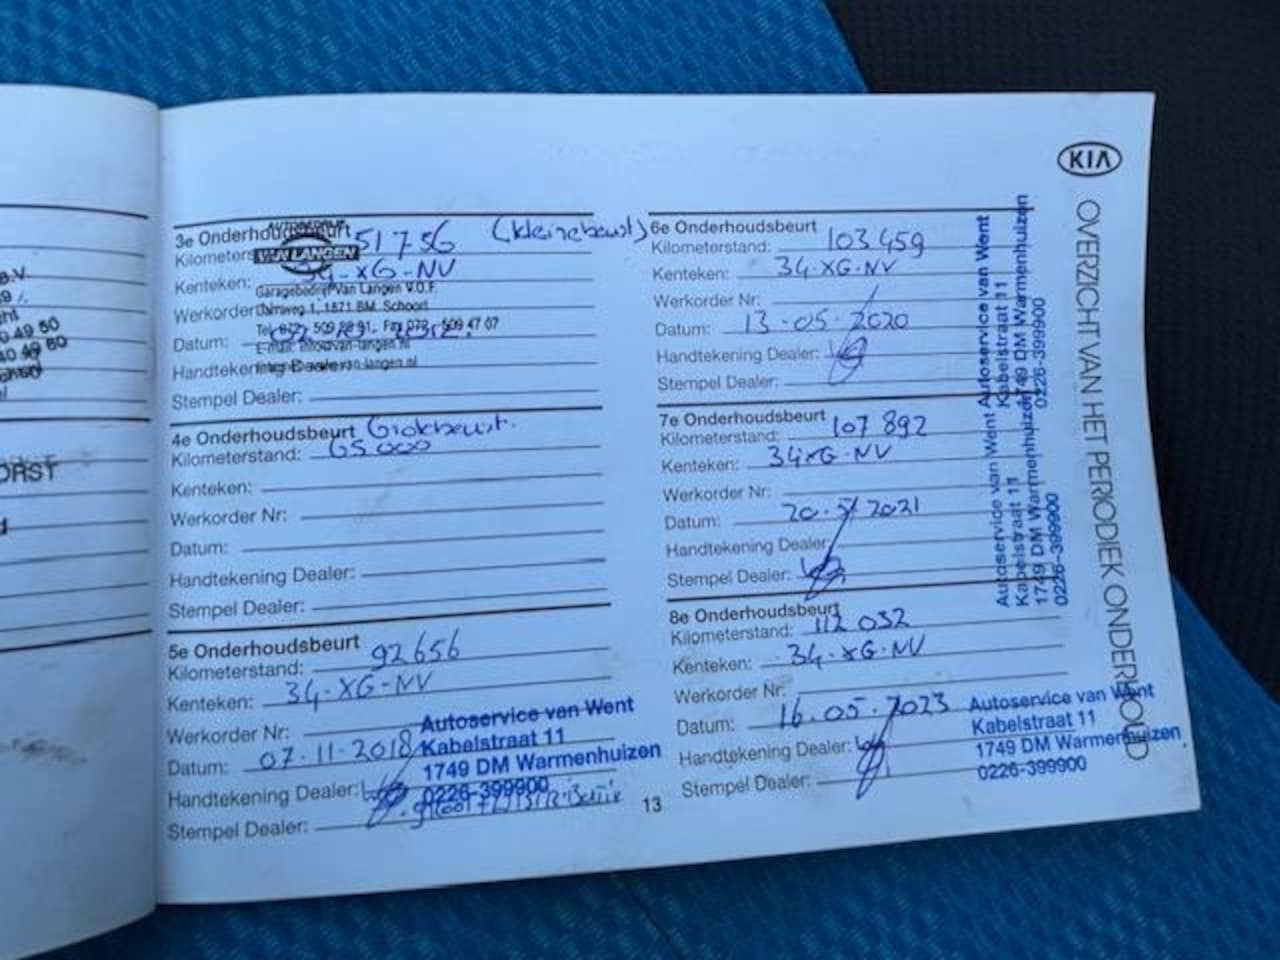 B.V.
ght
0 49 50
40 49 60
ORST
3e Onderhoudsbeurt 51756 (kleinebeurt)
AUTOBEDRIJF
VAN LANGEN
Kenteken: 34-XG-NV
Garagebedrijf Van Langen V.O.F.
1, 1871 BM Schoorl
Werkorder
Tel. 072 - 509 Fax 072 - 509 47 07
Datum:
E-mail: info@van-langen.nl
Handtekening Dealer:
Stempel Dealer:
4e Onderhoudsbeurt Grotebeurt.
Kilometerstand: 65000
Kenteken:
Werkorder Nr:
Datum:
Handtekening Dealer:
Stempel Dealer:
5e Onderhoudsbeurt
Kilometerstand: 92656
Kenteken: 34-XG-NV
Werkorder Nr:
Datum: 07-11-2018
Handtekening Dealer:
Stempel Dealer:
Autoservice van Went
Kabelstraat 11
1749 DM Warmenhuizen
0226-399900
13
6e Onderhoudsbeurt
Kilometerstand: 103459
Kenteken: 34-XG-NV
Werkorder Nr:
Datum: 13-05-2020
Handtekening Dealer:
Stempel Dealer:
Autoservice van Went
Kabelstraat 11
1749 DM Warmenhuizen
0226-399900
7e Onderhoudsbeurt
Kilometerstand: 107892
Kenteken: 34-XG-NV
Werkorder Nr:
Datum: 20-5-2021
Handtekening Dealer:
Stempel Dealer:
Autoservice van Went
Kabelstraat 11
1749 DM Warmenhuizen
0226-399900
8e Onderhoudsbeurt
Kilometerstand: 112032
Kenteken: 34-XG-NV
Werkorder Nr.
Datum: 16-05-2023
Handtekening Dealer:
Stempel Dealer:
Autoservice van Went
Kabelstraat 11
1749 DM Warmenhuizen
0226-399900
KIA
OVERZICHT VAN HET PERIODIEK ONDERHOUD